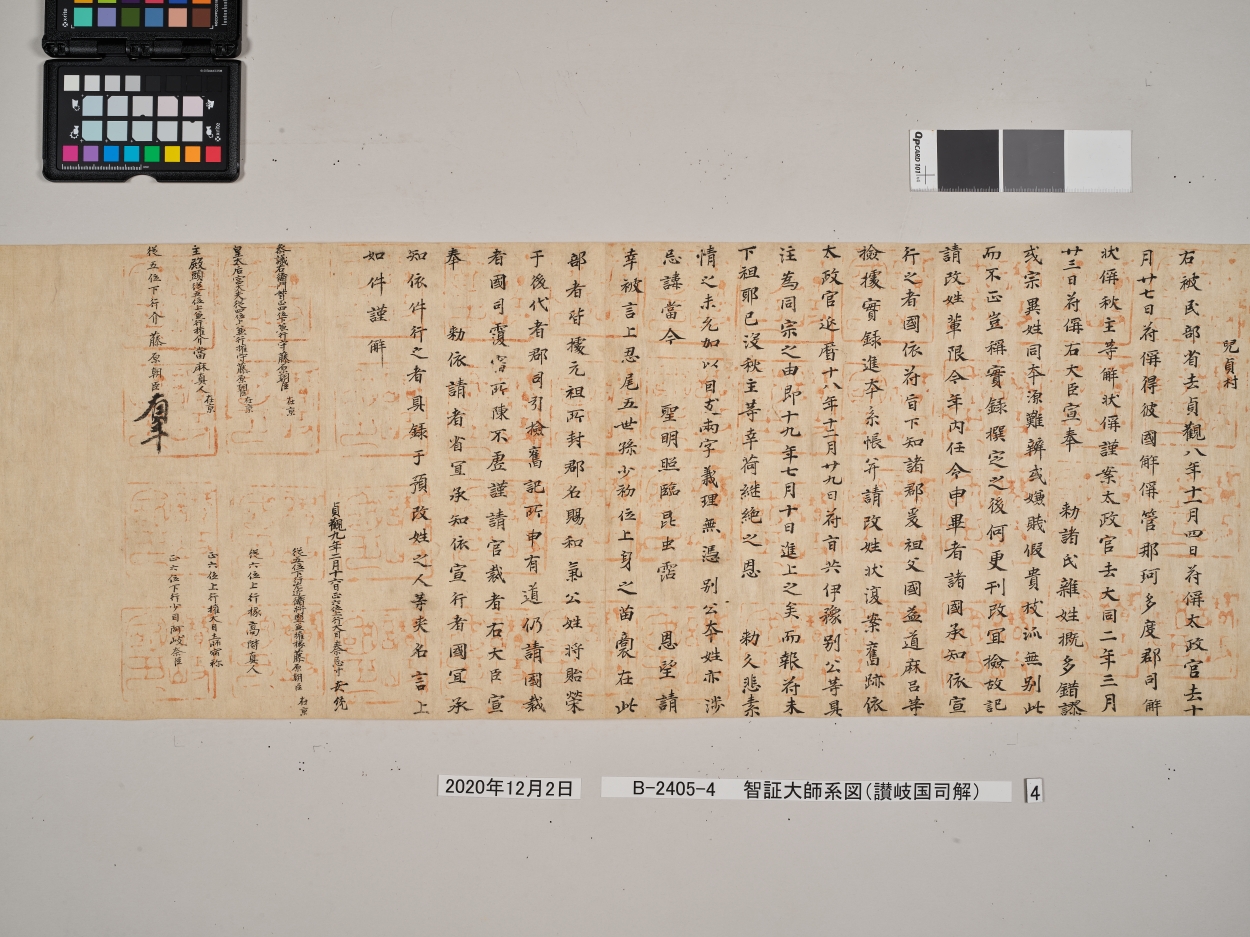 児貞村
右被民部省去貞観八年十一月四日符偁太政官去十
月廿七日符偁得彼國解偁管那珂多度郡司解
状偁秋主等解状偁謹案太政官去大同二年三月
廿三日符偁右大臣宣奉 勅諸氏雜姓概多錯謬
或宗異姓同本源難辨或嫌賎假貴枝派無別此
而不正豈稱實録撰定之後何更刊改宜檢故記
請改姓輩限今年内任令申畢者諸國承知依宣
行之者國依符旨下知諸郡爰祖父國益道麻呂等
檢據實録進本系帳并請改姓状復案舊跡依
太政官延暦十八年十二月廿九日符旨共伊豫別公等具
注為同宗之由即十九年七月十日進上之矣而報符未
下祖耶已沒秋主等幸荷継絶之恩 勅久悲素
情之未允加以因支兩字義理無憑別公本姓亦渉
忌諱當今 聖明照臨昆虫霑 恩望請
幸被言上忍尾五世孫少初位上身之苗裔在此
部者皆據元祖所封郡名賜和氣公姓将貽榮
于後代者郡司引檢舊記所申有道仍請國裁
者國司覆審所陳不虚謹請官裁者右大臣宣
奉 勅依請者省宜承知依宣行者國宜承
知依件行之者具録于預改姓之人等夾名言上
如件謹解
貞観九年二月十六日正六位上行大目秦忌寸安統
参議右衛門督正四位下兼行守藤原朝臣 在京
従五位下行左近衛将監兼権掾藤原朝臣 在京
皇太后宮大夫従四位下兼行権守藤原朝臣 在京
従六位上行掾高階真人
主殿頭従五位下兼行権介當麻真人 在京
正六位上行権大目
従五位下行介藤原朝臣 有年
正六位下行少目阿岐奈臣
QPCARD 101
x-rite
2020年12月2日
B-2405-4 智証大師系図(讃岐国司解)
4